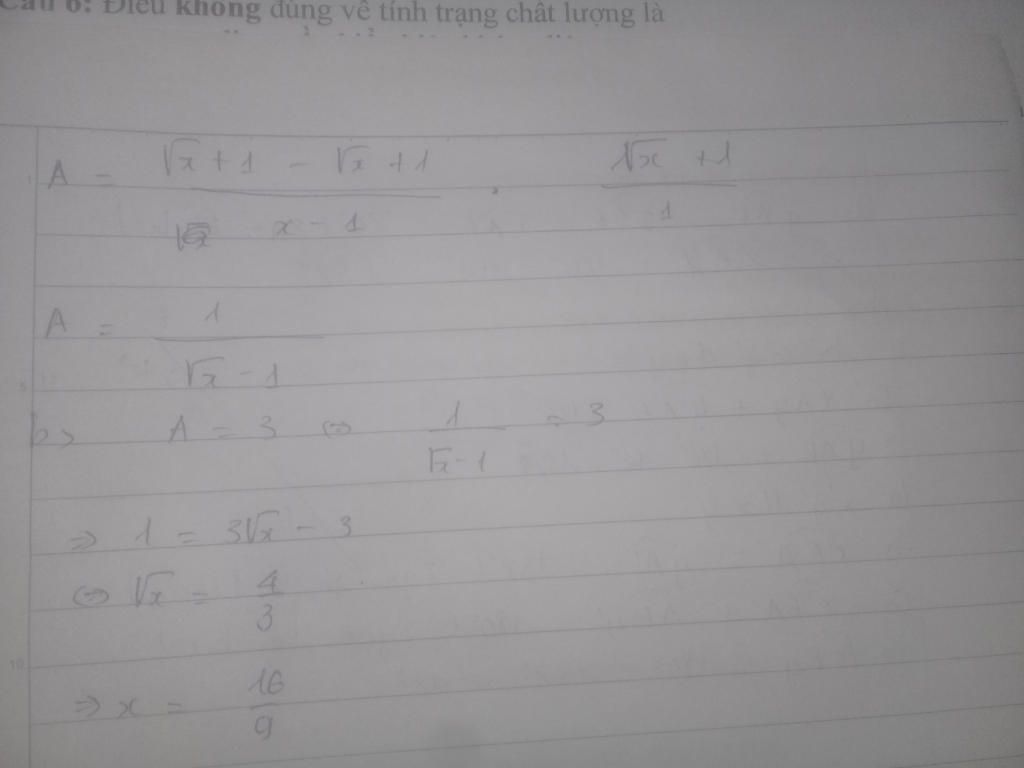 Câu 6: Điều không đúng về tính trạng chất lượng là
A = \frac{\sqrt{x} + 1 - \sqrt{x} + 1}{x - 1} . \frac{\sqrt{x} + 1}{1}
A = \frac{1}{\sqrt{x} - 1}
b> A = 3 ⇔ \frac{1}{\sqrt{x} - 1} = 3
⇒ 1 = 3\sqrt{x} - 3
⇔ \sqrt{x} = \frac{4}{3}
⇒ x = \frac{16}{9}